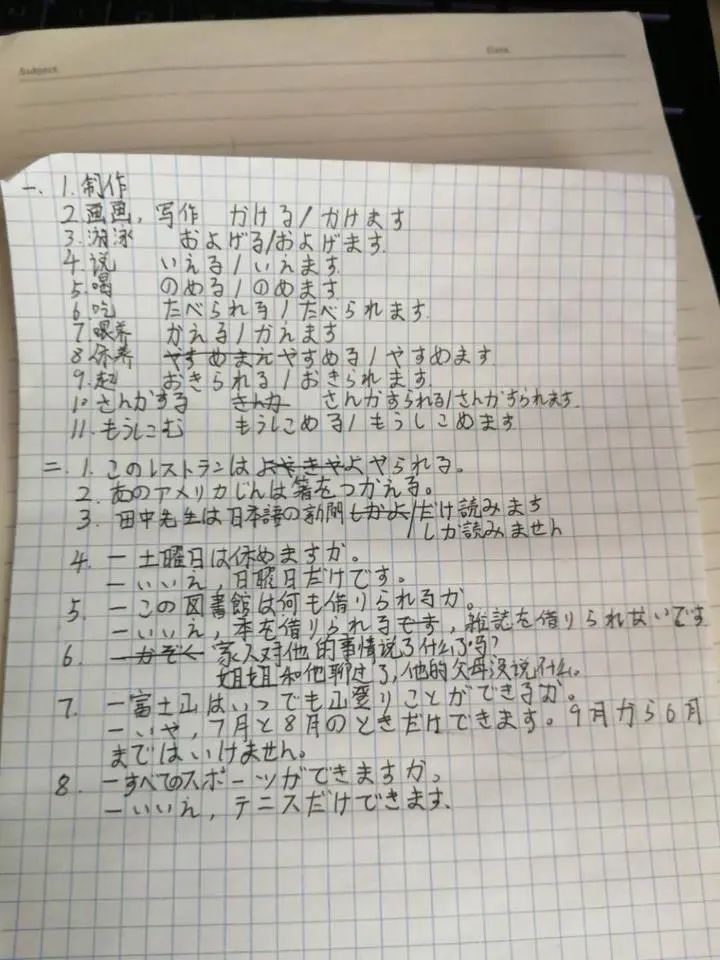 Subject
Date
一、1. 制作
2. 画画，写作 かける/かけます
3. 游泳 およげる/およげます.
4. 说 いえる/いえます.
5. 喝 のめる/のめます
6. 吃 たべられる/たべられます.
7. 喂养 かえる/かえます
8. 休养 やすめまえ やすめる/やすめます
9. 起 おきられる/おきられます.
10. さんかする さんか さんかすられる/さんかすられます.
11. もうしこむ もうしこめる/もうしこめます
二. 1. このレストランは よやきやよ やられる。
2. あのアメリカじんは箸をつかえる。
3. 田中先生は日本語の新聞しかよ/だけ読みます
しか読みません
4. 一 土曜日は休めますか。
一 いいえ, 日曜日だけです。
5. 一 この図書館は何も借りられるか。
一 いいえ, 本を借りられるです, 雑誌を借りられないです
6. 一 かぞく 家人对他的事情说了什么了吗?
姐姐和他聊过了, 他的父母没说什么。
7. 一 富士山はいつでも山登りことができるか。
一 いや, 7月と8月のときだけできます。9月から6月
まではいけません。
8. 一 すべてのスポーツができますか。
一 いいえ, テニスだけできます.